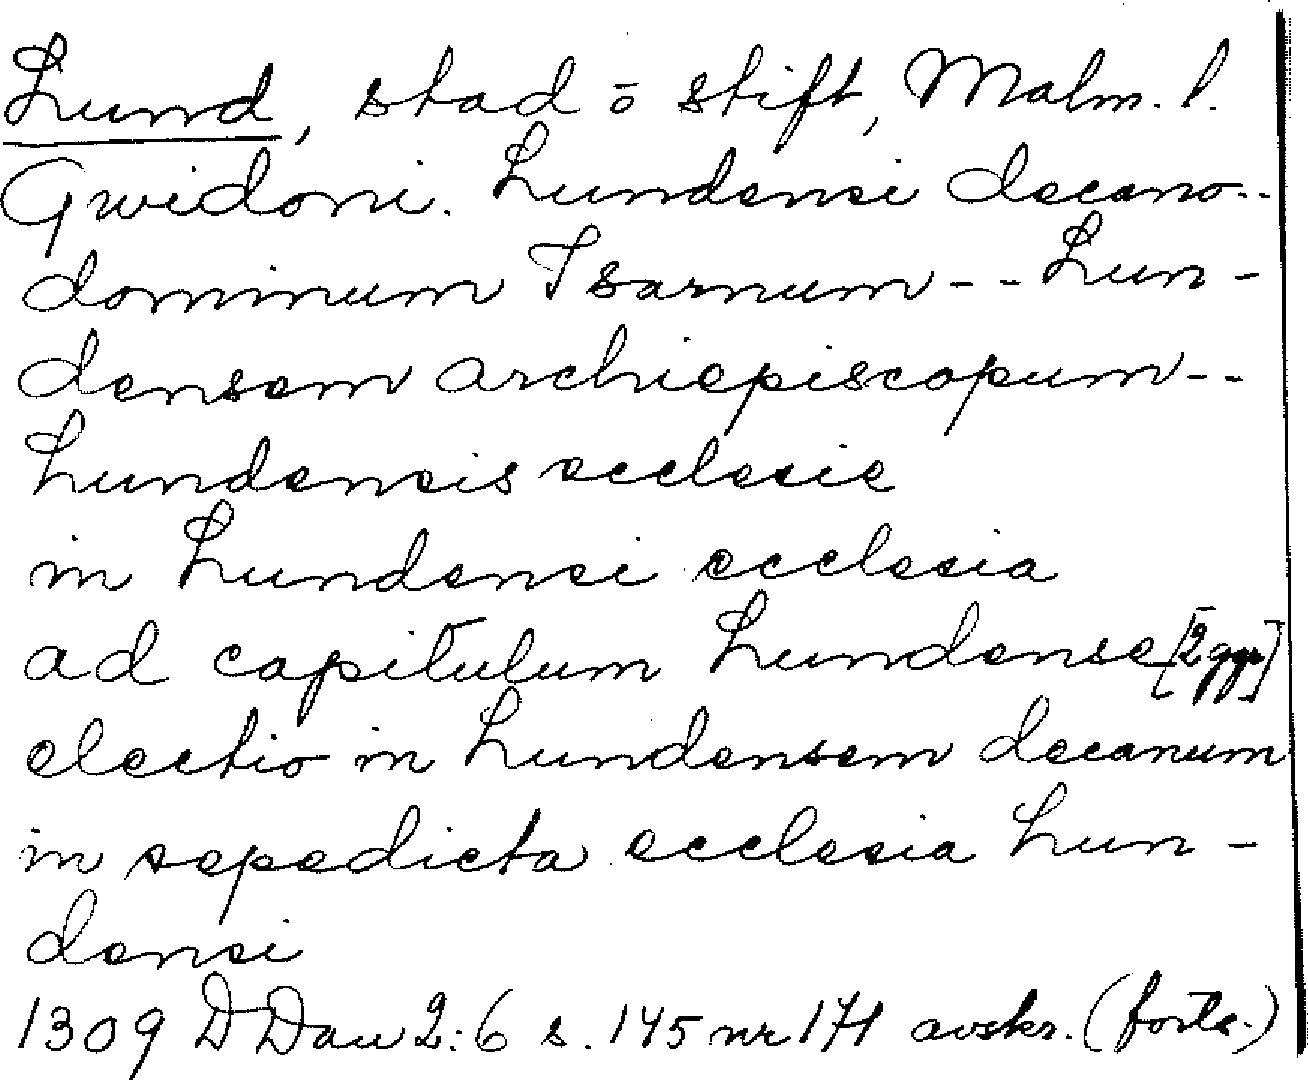 Lund, stad o stift, Malm. l.
Gwidoni. Lundensi decano--
dominum Isarnum -- Lun-
densem archiepiscopum --
Lundensis ecclesie
in Lundensi ecclesia
ad capitulum Lundense [2 ggr]
electio in Lundensem decanum
in sepedicta ecclesia Lun-
densi
1309 DDan 2:6 s. 145 nr 171 avskr. (forts.)